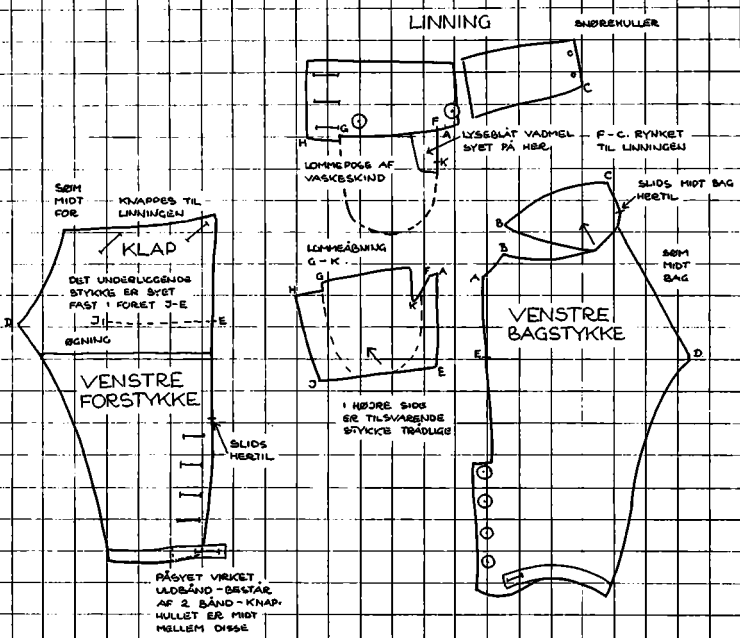 LINNING
SNØREHULLER
C
H
G
F
A
K
LOMMEPOSE AF
VASKESKIND
LYSEBLÅT VADMEL
SYET PÅ HER
F-C. RYNKET
TIL LINNINGEN
SØM
MIDT
FOR
KNAPPES TIL
LINNINGEN
KLAP
DET UNDERLIGGENDE
STYKKE ER SYET
FAST I FORET J-E
D
J
E
ØGNING
VENSTRE
FORSTYKKE
SLIDS
HERTIL
PÅSYET VIRKET
ULDBÅND - BESTÅR
AF 2 BÅND - KNAP-
HULLET ER MIDT
MELLEM DISSE
LOMMEÅBNING
G-K.
H
G
F
A
K
J
E
I HØJRE SIDE
ER TILSVARENDE
STYKKE TRÅDLIGE
C
SLIDS MIDT BAG
HERTIL
B
B
A
SØM
MIDT
BAG
VENSTRE
BAGSTYKKE
E
D